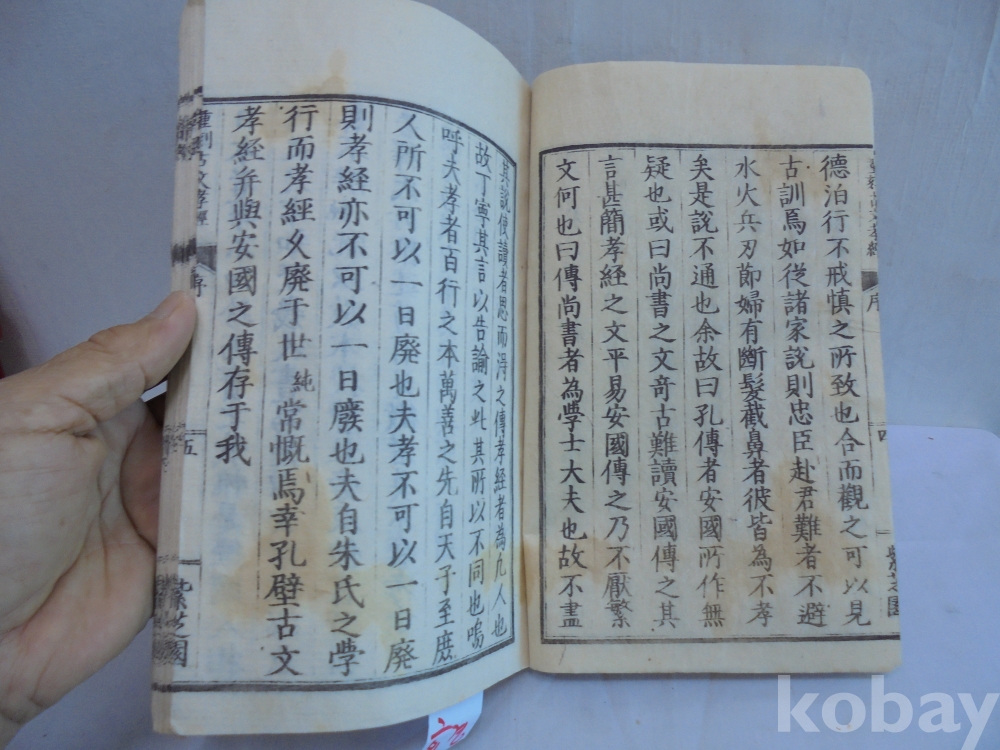 重刻古文孝經
序
四
紫芝園
德泊行不戒慎之所致也合而觀之可以見
古訓焉如從諸家說則忠臣赴君難者不避
水火兵刃節婦有斷髮截鼻者彼皆為不孝
矣是說不通也余故曰孔傳者安國所作無
疑也或曰尚書之文奇古難讀安國傳之其
言甚簡孝經之文平易安國傳之乃不厭繁
文何也曰傳尚書者為學士大夫也故不盡
其說使讀者思而得之傳孝經者為凡人也
故丁寧其言以告諭之此其所以不同也嗚
呼夫孝者百行之本萬善之先自天子至庶
人所不可以一日廢也夫孝不可以一日廢
則孝經亦不可以一日廢也夫自朱氏之學
行而孝經久廢于世純常慨焉幸孔壁古文
孝經并與安國之傳存于我
重刻古文孝經
序
五
紫芝園
kobay